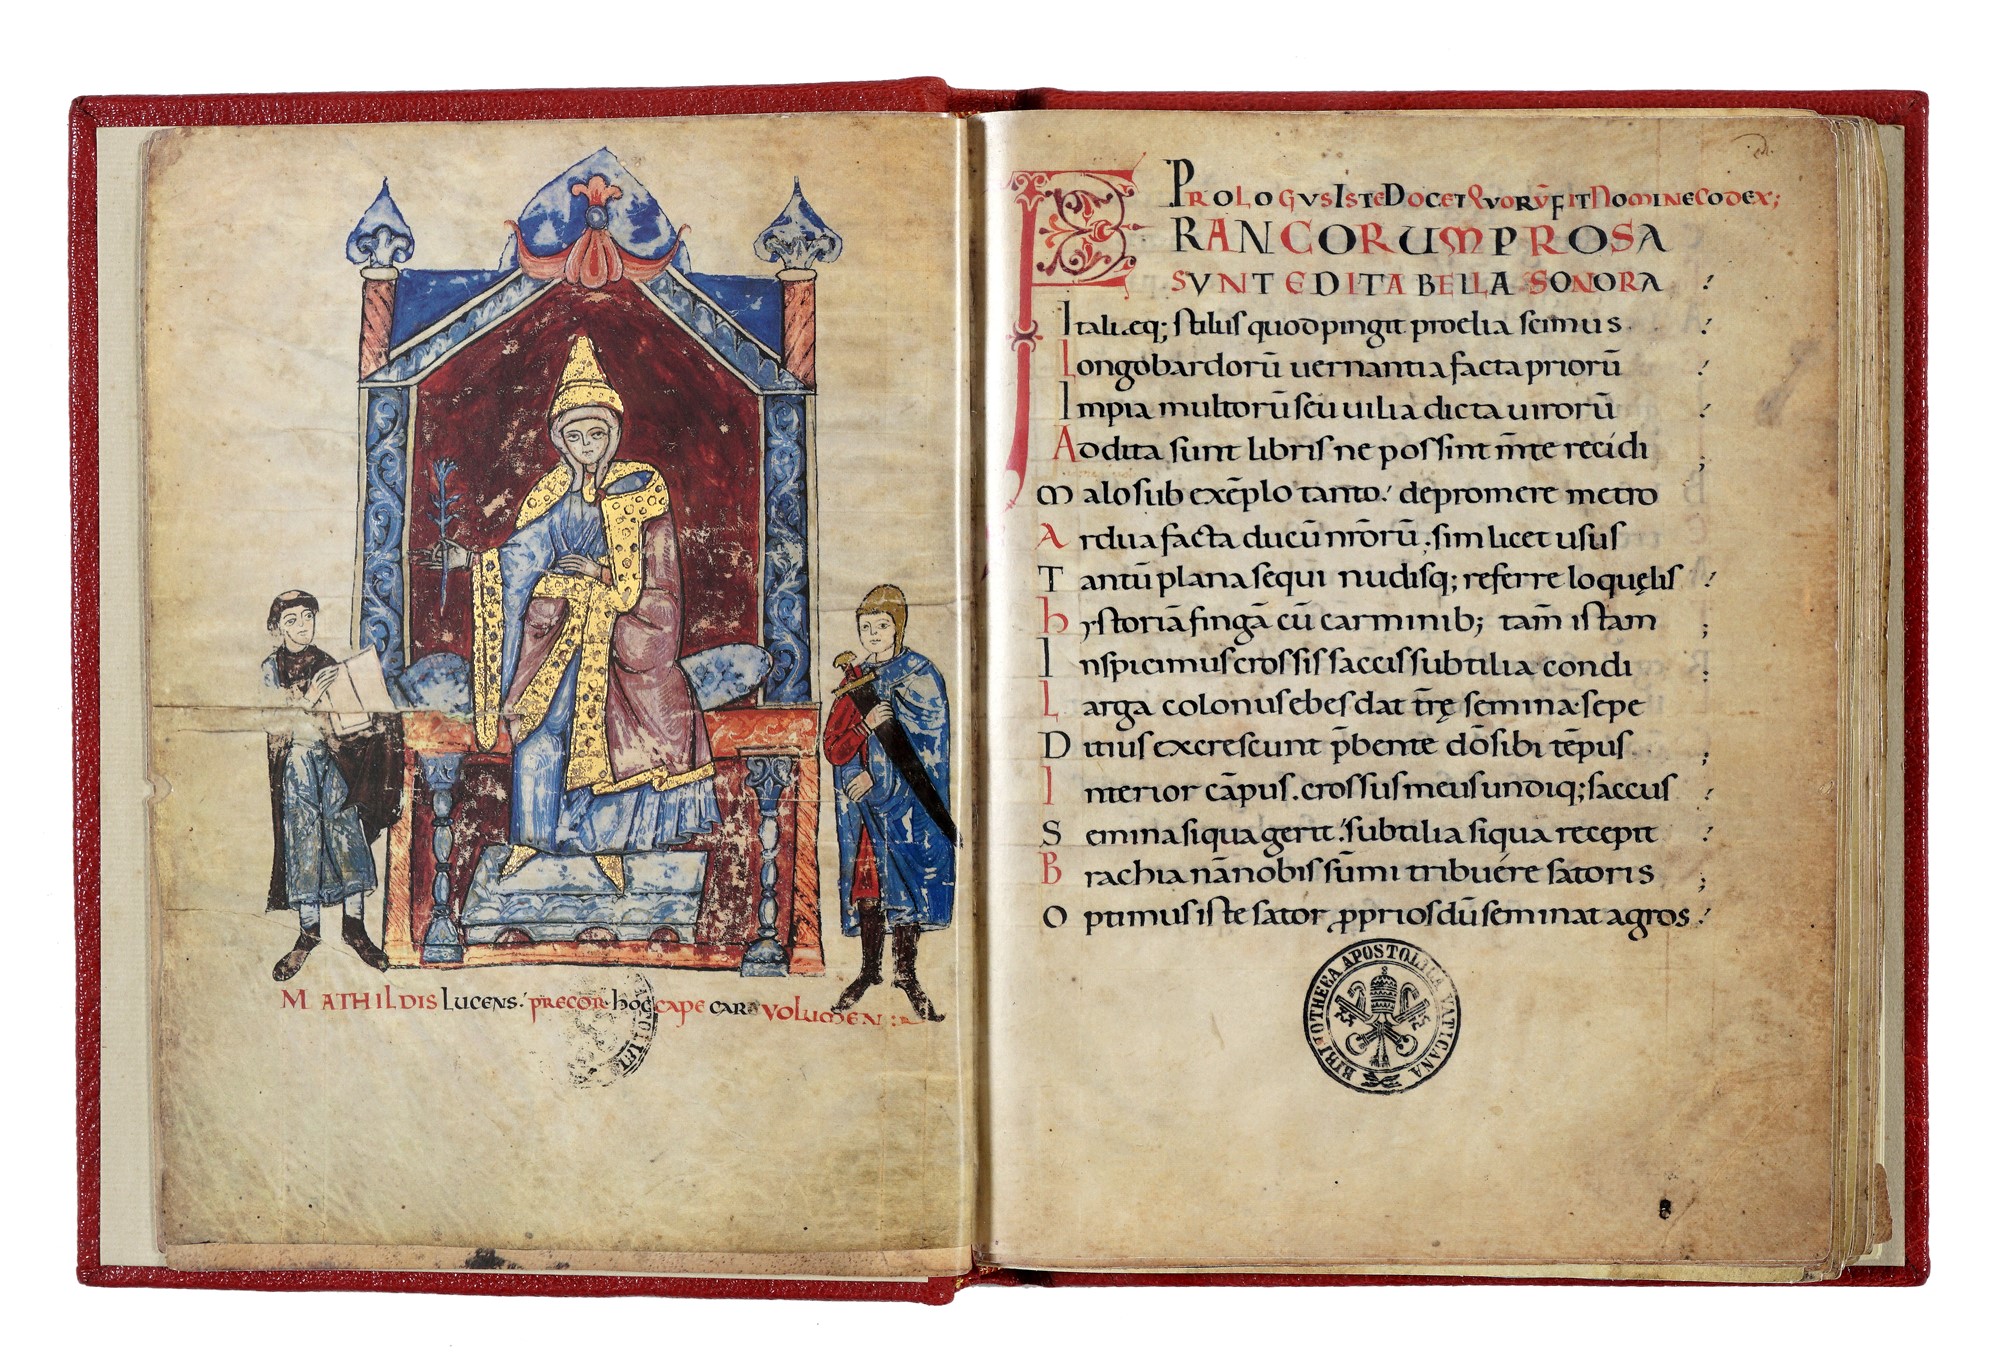 MATHILDIS LUCENS: PRECOR hoC CAPE CARA VOLUMEN:
PROLOGUS ISTE DOCET QUORŪ FIT NOMINE CODEX;
FRANCORUM PROSA
SUNT EDITA BELLA SONORA
Itali.eq; stilus quod pingit proelia scimus.
Longobardorū vernantia facta priorū
Impia multorū seu vilia dicta virorū
Addita sunt libris ne possint m̄te recidi
Malo sub exēplo tanto. depromere metro
Ardua facta ducū nr̄orū. sim licet usus
Tantū plana sequi nudisq; referre loquęlis
hystoriā fingā cū carminib; tam̄ istam
Inspicimus crossis saccis subtilia condi
Larga colonus ebes dat tr̄ę semina sepe
Ditius excrescunt p̄bente dō sibi tēpus.
Interior cāpus. crossus meus undiq; saccus
Semina siqua gerit. subtilia siqua recepit
Brachia nā nobis sūmi tribuére satoris
Optimus iste sator ꝓprios dū seminat agros.
BIBLIOTHECA APOSTOLICA VATICANA